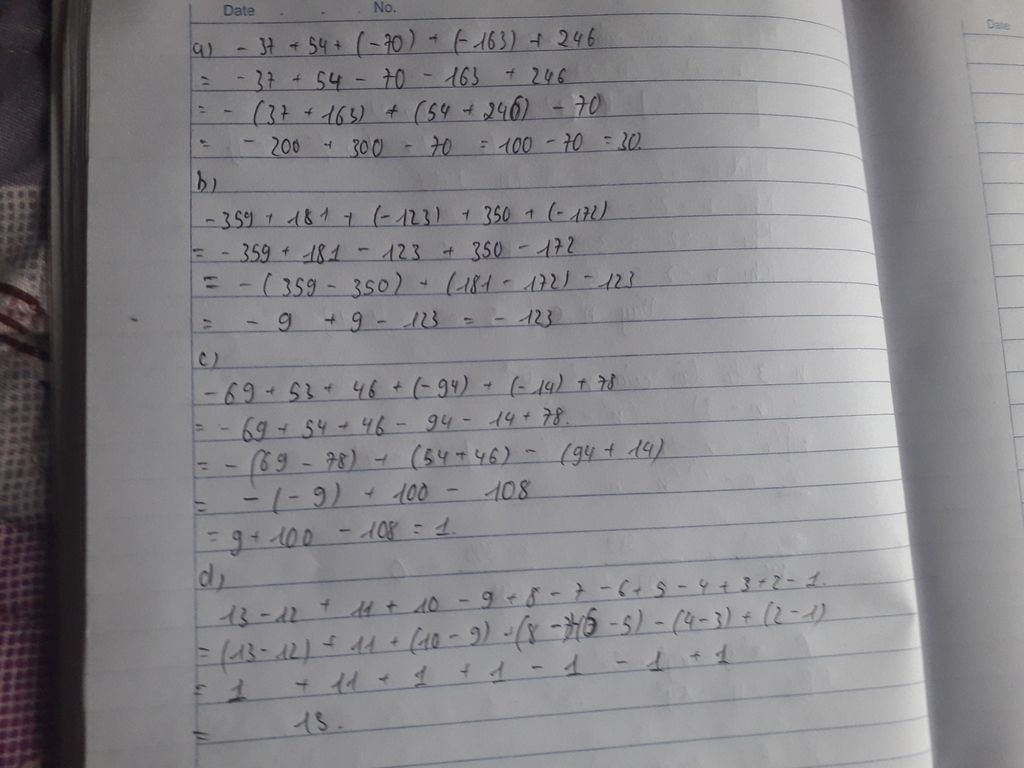 Date . . No.
Date
a) - 37 + 54 + (-70) + (-163) + 246
= - 37 + 54 - 70 - 163 + 246
= - (37 + 163) + (54 + 246) - 70
= - 200 + 300 - 70 = 100 - 70 = 30.
b)
-359 + 181 + (-123) + 350 + (-172)
= - 359 + 181 - 123 + 350 - 172
= - (359 - 350) + (181 - 172) - 123
= - 9 + 9 - 123 = - 123
c)
- 69 + 53 + 46 + (-94) + (-14) + 78
= - 69 + 54 + 46 - 94 - 14 + 78.
= - (69 - 78) + (54 + 46) - (94 + 14)
= - (-9) + 100 - 108
= 9 + 100 - 108 = 1.
d)
13 - 12 + 11 + 10 - 9 + 8 - 7 - 6 + 5 - 4 + 3 + 2 - 1.
= (13 - 12) + 11 + (10 - 9) + (8 - 7) (6 - 5) - (4 - 3) + (2 - 1)
= 1 + 11 + 1 + 1 - 1 - 1 + 1
= 13.